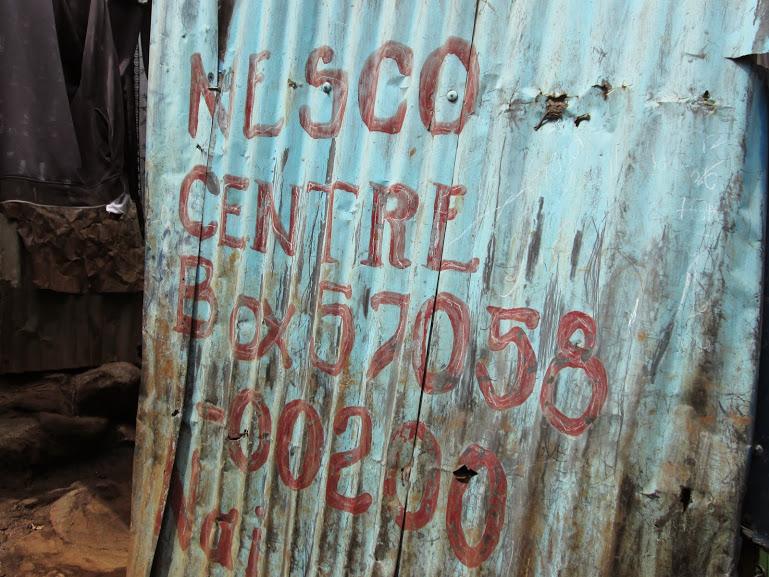 MESCO
CENTRE
Box 57058
-00200
Nai